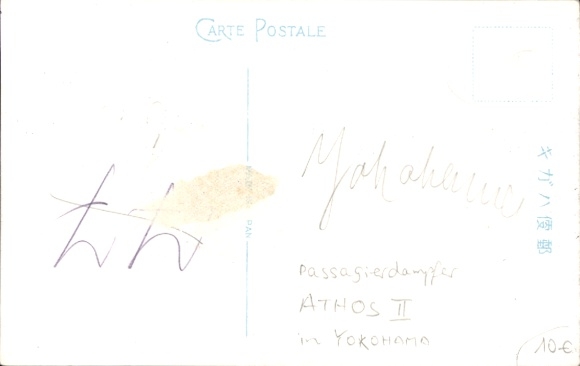 CARTE POSTALE
Yokohama
キガハ便郵
Passagierdampfer
ATHOS II
in YOKOHAMA
10.-€